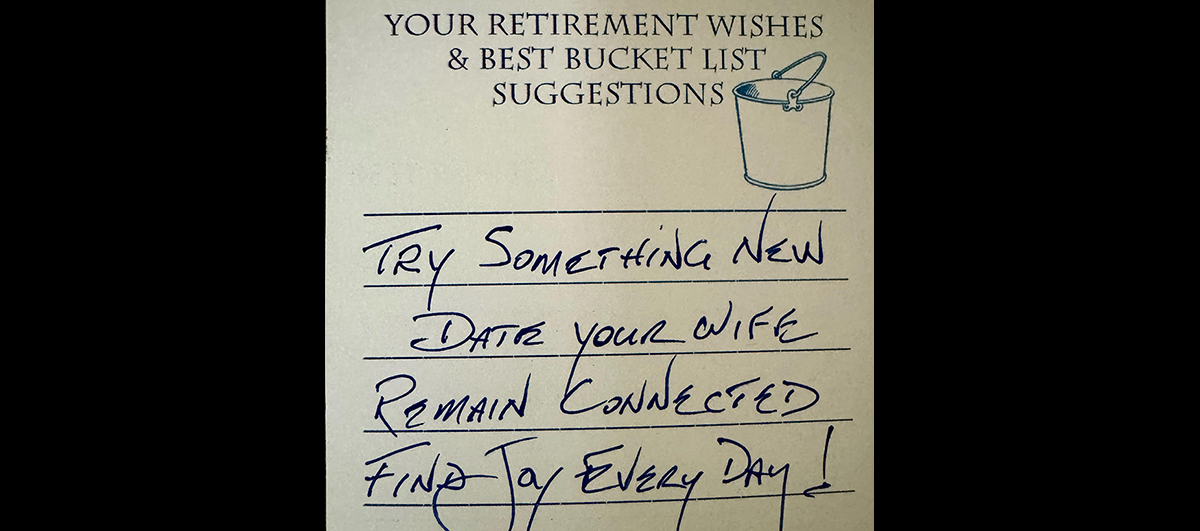 YOUR RETIREMENT WISHES
& BEST BUCKET LIST
SUGGESTIONS
TRY SOMETHING NEW
DATE YOUR WIFE
REMAIN CONNECTED
FIND JOY EVERY DAY!